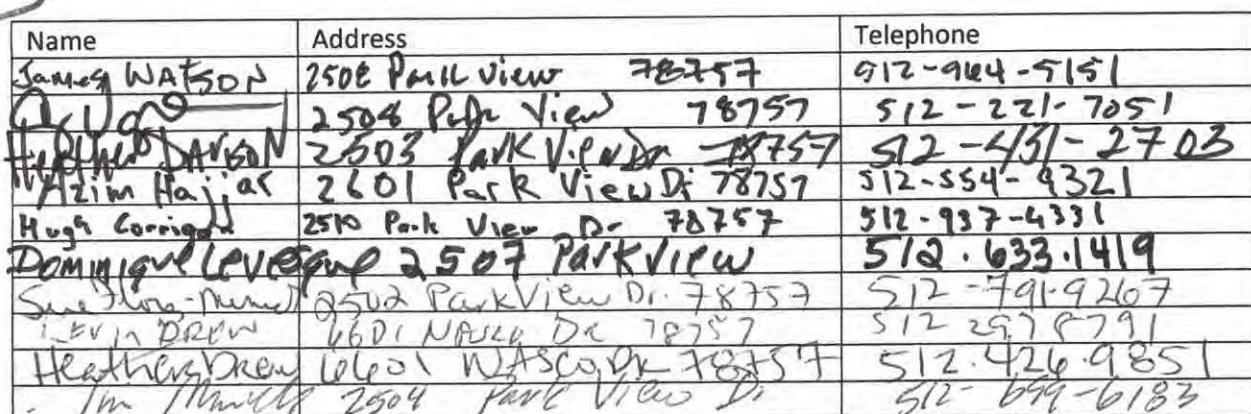 Name Address Telephone
James WATSON 2508 Park View 78757 512-964-5151
2508 Park View 78757 512-221-7051
Heather DAVISON 2503 Park View Dr 78757 512-451-2703
Azim Hajjar 2601 Park View Dr 78757 512-554-9321
Hugh Corrigan 2510 Park View Dr 78757 512-937-4331
Dominique Levesque 2507 Park View 512.633.1419
2502 Park View Dr. 78757 512-791-9267
KEVIN DREW 6601 Dr 78757 512 297 8791
Heather Drew 6601 WASCO DR 78757 512.426.9851
2504 Park View Dr 512-699-6183